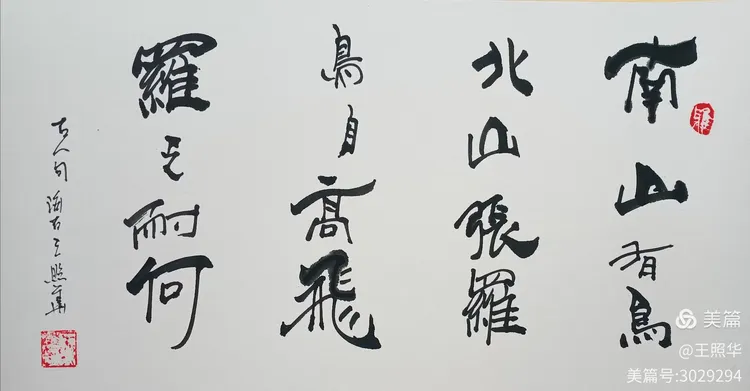 南山有鳥
北山張羅
鳥自高飛
羅耐何
古人句 王照華
美篇
@王照华
美篇号:3029294